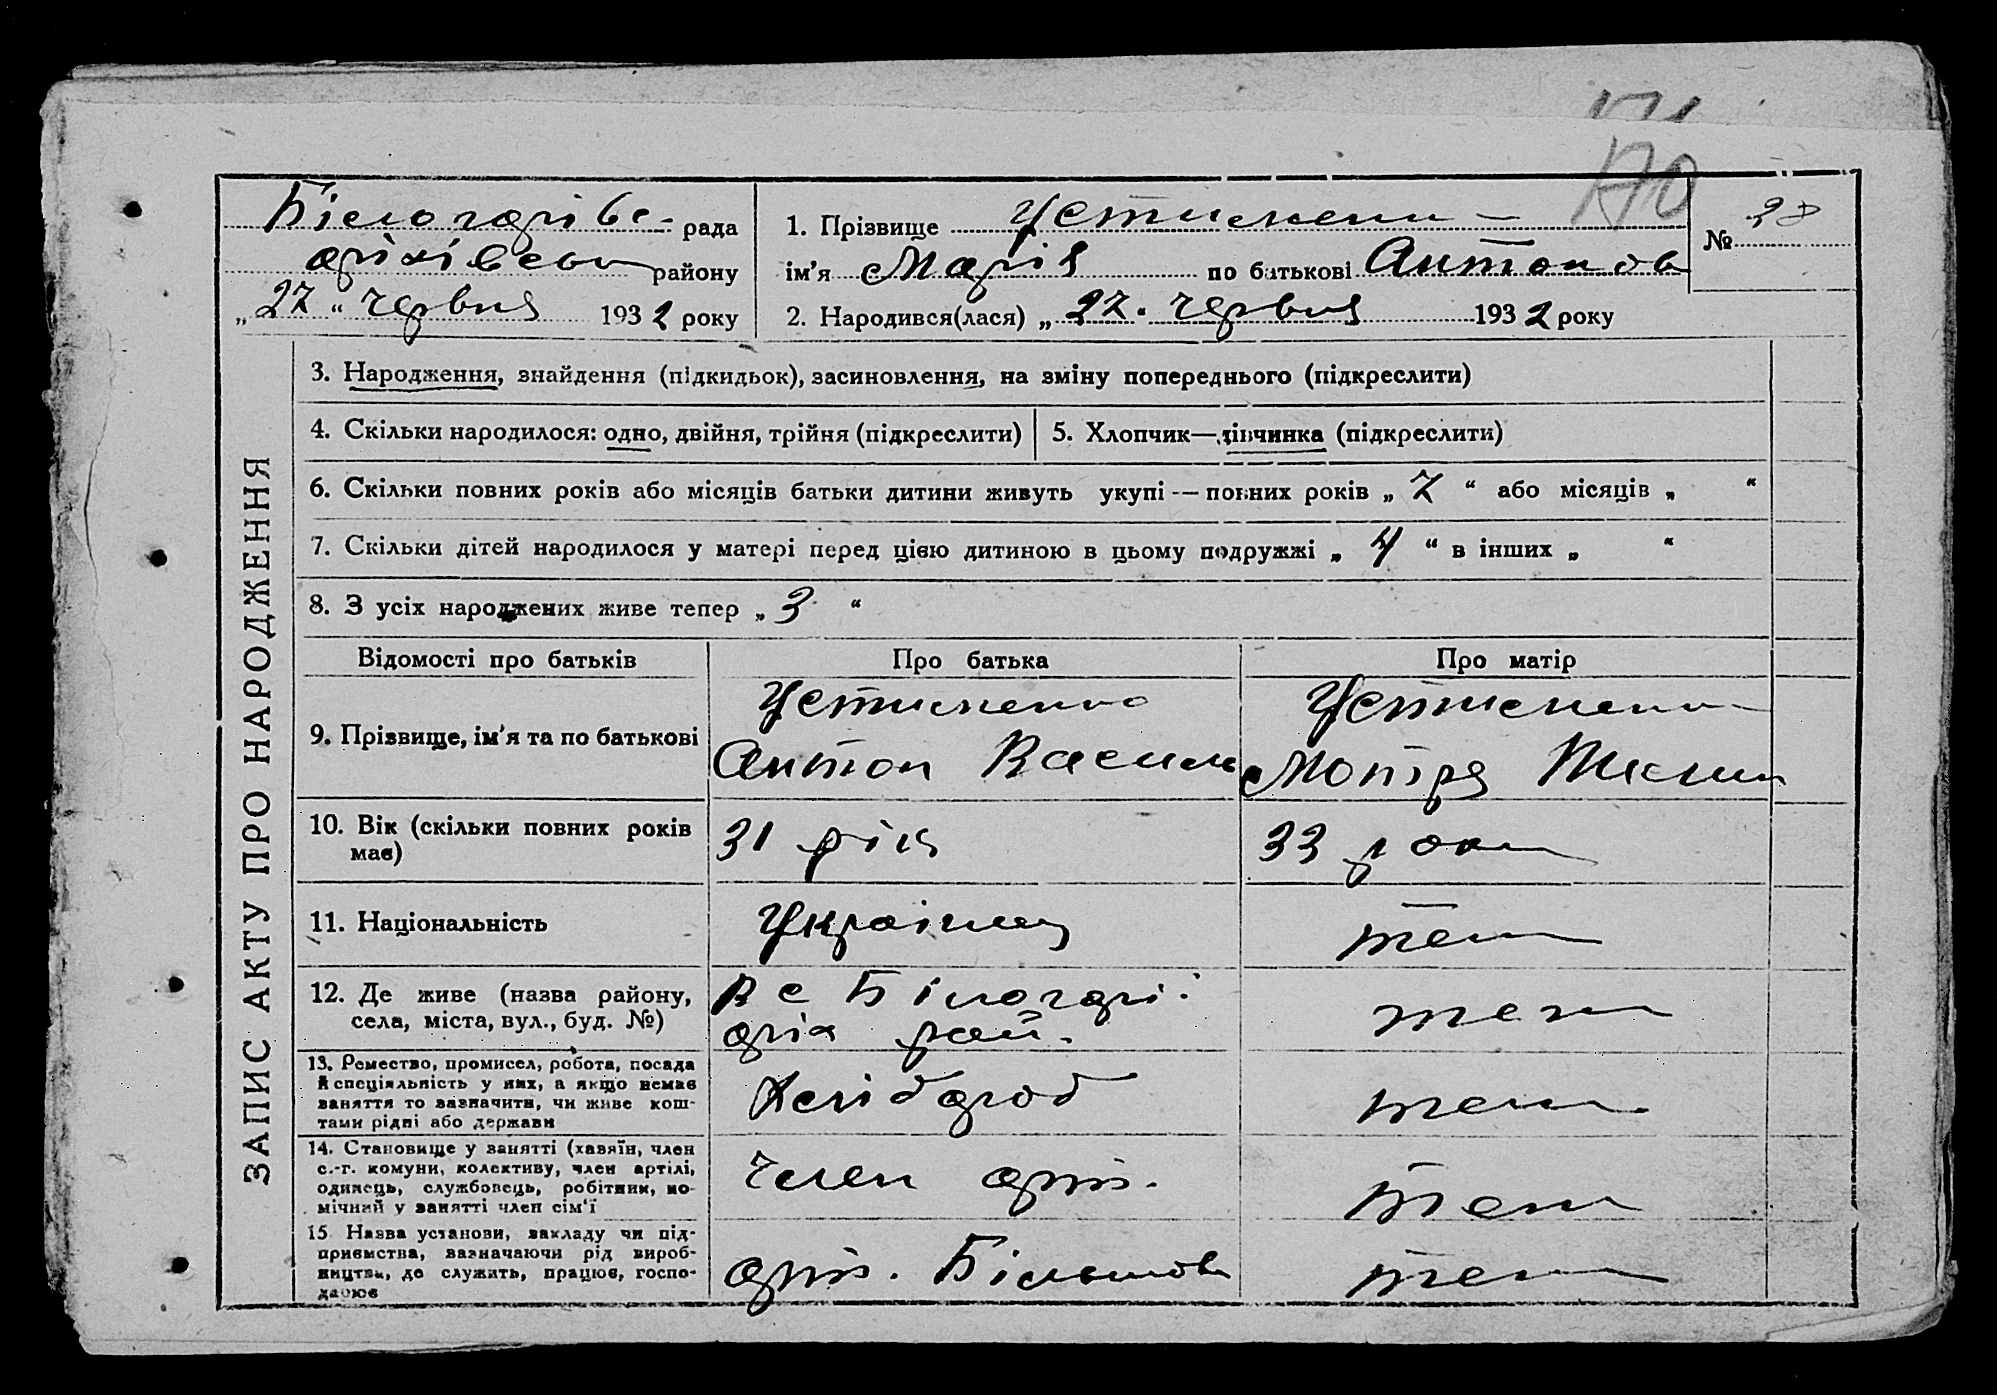 171
170
Білогарівс- рада
оріхівськ району
„27“ червня 1932 року
1. Прізвище Устименко
ім'я Марія по батькові Антонов
2. Народився(лася) „27. червня 1932 року
№ 38
ЗАПИС АКТУ ПРО НАРОДЖЕННЯ
3. Народження, знайдення (підкидьок), засиновлення, на зміну попереднього (підкреслити)
4. Скільки народилося: одно, двійня, трійня (підкреслити)
5. Хлопчик—дівчинка (підкреслити)
6. Скільки повних років або місяців батьки дитини живуть укупі — повних років „ 7 “ або місяців „ “
7. Скільки дітей народилося у матері перед цією дитиною в цьому подружжі „ 4 “ в інших „ “
8. З усіх народжених живе тепер „ 3 “
Відомості про батьків Про батька Про матір
9. Прізвище, ім'я та по батькові
Устименко
Антон Василь
Устименко
Мотря
10. Вік (скільки повних років
має)
31 рік
33 роки
11. Національність
Українец
теж
12. Де живе (назва району,
села, міста, вул., буд. №)
В с Білогарі.
оріх рай.
теж
13. Ремество, промисел, робота, посада
й спеціяльність у них, а якщо немає
заняття то зазначити, чи живе кош-
тами рідні або держави
Хлібороб
теж
14. Становище у занятті (хазяїн, член
с.-г. комуни, колективу, член артілі,
одинець, службовець, робітник, по-
мічний у занятті член сім'ї
член арт.
теж
15 Назва установи, закладу чи під-
приємства, зазначаючи рід вироб-
ництва, де служить, працює, госпо-
дарює
арт. Більшов
теж